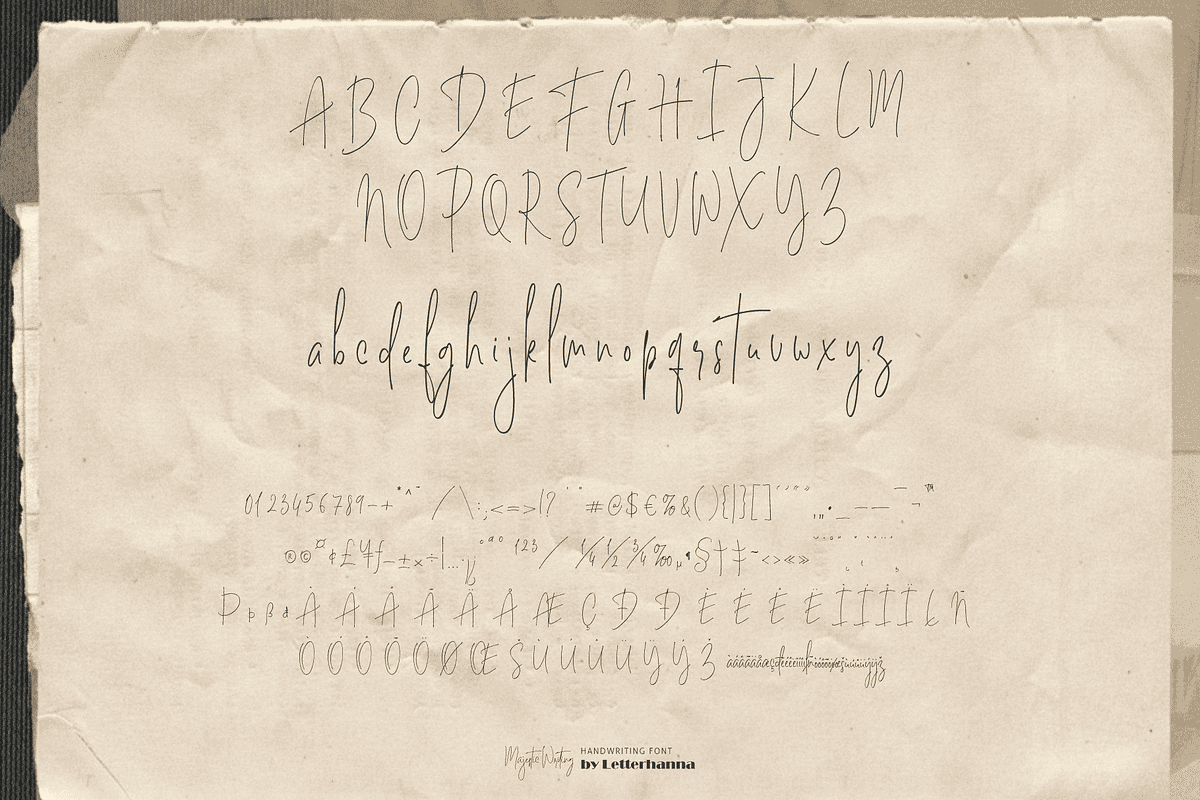 A B C D E F G H I J K L M
N O P Q R S T U V W X Y Z
a b c d e f g h i j k l m n o p q r s t u v w x y z
0 1 2 3 4 5 6 7 8 9 − + * ^ ~ / \ : ; < = > ! ? # @ $ € % & ( ) { | } [ ] ™
® © ¤ ¢ £ ¥ ƒ ± × ÷ ¦ … ¿ ¡ ° ª º ¹ ² ³ ⁄ ¼ ½ ¾ ‰ µ § † ‡ ‹ › « »
Þ þ ß Æ Ç Ð Đ Ł Ñ
Ø Œ Š Ž
Majestic Writing HANDWRITING FONT
by Letterhanna